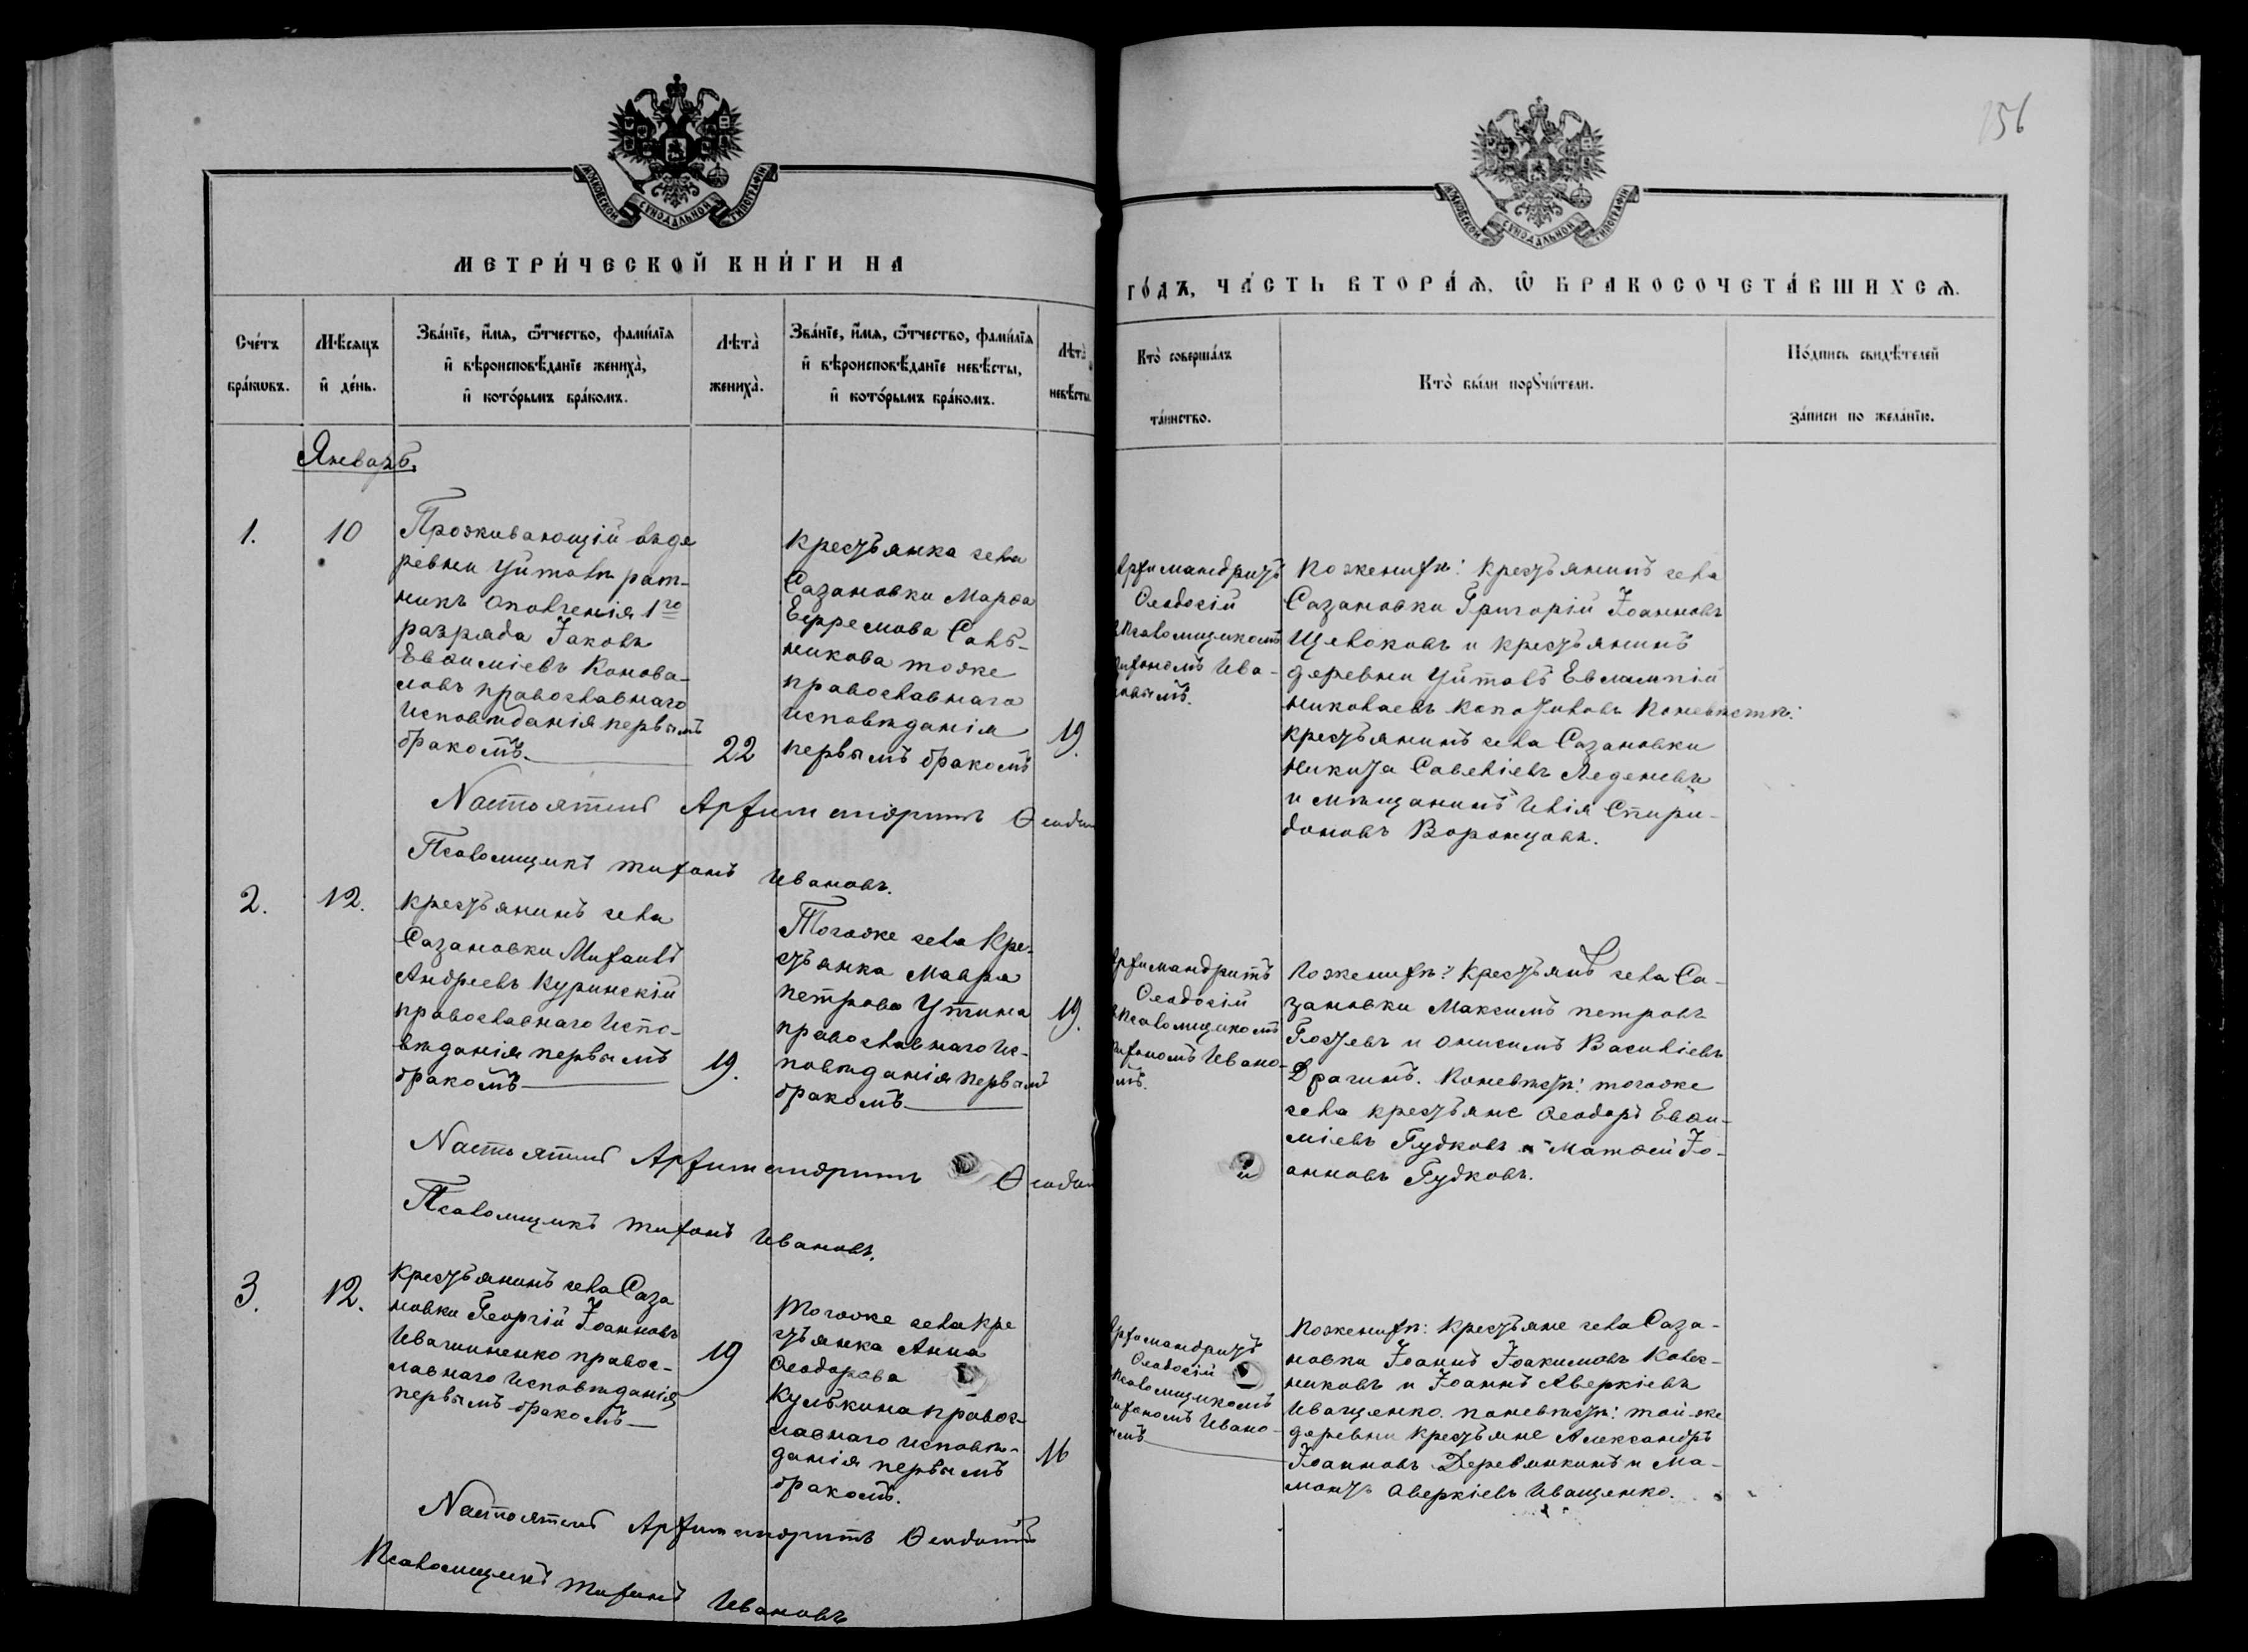 156
МОСКОВСКОЙ СѴНОДАЛЬНОЙ ТИПОГРАФІИ
МОСКОВСКОЙ СѴНОДАЛЬНОЙ ТИПОГРАФІИ
МЕТРИ́ЧЕСКОЙ КНИ́ГИ НА
ГО́ДЪ, ЧА́СТЬ ВТОРА́Ѧ, Ѽ БРАКОСОЧЕТА́ВШИХСѦ.
Сче́тъ
бра́кѡвъ.
Мѣ́сяцъ
и҆ де́нь.
Зва́нїе, и҆́мѧ, ѻ҆́тчество, фами́лїѧ
и҆ вѣроисповѣ́данїе жениха̀,
и҆ кото́рымъ бра́комъ.
Лѣта̀
жениха̀.
Зва́нїе, и҆́мѧ, ѻ҆́тчество, фами́лїѧ
и҆ вѣроисповѣ́данїе невѣ́сты,
и҆ кото́рымъ бра́комъ.
Лѣта̀
невѣ́сты.
Кто̀ соверша́лъ
та́инство.
Кто̀ бы́ли порꙋчи́тели.
По́дпись свидѣ́телей
за́писи по жела́нїю.
Январь.
1.
10
Проживающій въ де
ревни Уйтавъ рат-
никъ ополченія 1го
разряда Іаковъ
Евѳиміевъ Конова-
ловъ православнаго
исповѣданія первымъ
бракомъ.
22
Крестьянка села
Сазановки Марѳа
Ефремова Саль-
никова тоже
православнаго
исповѣданія
первымъ бракомъ
19.
Архимандритъ
Ѳеодосій
Псаломщикомъ
Тихономъ Ива-
новымъ.
По женихѣ: Крестьянинъ села
Сазановки Григорій Іоанновъ
Щелоковъ и крестьянинъ
деревни Уйтавъ Евлампій
Николаевъ По невѣстѣ:
Крестьянинъ села Сазановки
Никита Савеліевъ Леденевъ
и мѣщанинъ Илія Спири-
доновъ Воронцовъ.
Настоятель Архимандритъ Ѳеодосій
Псаломщикъ Тихонъ Ивановъ.
2.
12.
Крестьянинъ села
Сазановки Михаилъ
Андреевъ Куринскій
православнаго испо-
вѣданія первымъ
бракомъ
19.
Тогоже села Кре-
стьянка Мавра
Петрова Утина
православнаго ис-
повѣданія первымъ
бракомъ
19.
Архимандритъ
Ѳеодосій
Псаломщикомъ
Тихономъ Ивано-
вымъ.
По женихѣ: Крестьянъ села Са-
зановки Максимъ Петровъ
Гостевъ и Онисимъ Василіевъ
Драгинъ. По невѣстѣ: тогоже
села крестьяне Ѳеодоръ Евѳи-
міевъ Гудковъ и Матѳей Іо-
анновъ Гудковъ.
Настоятель Архимандритъ Ѳеодосій
Псаломщикъ Тихонъ Ивановъ.
3.
12.
Крестьянинъ села Саза
новки Георгій Іоанновъ
православ-
лавнаго исповѣданія
первымъ бракомъ
19
Тогоже села кре
стьянка Анна
Ѳеодорова
Кулькина правос-
лавнаго исповѣ-
данія первымъ
бракомъ.
16
Архимандритъ
Ѳеодосій
Псаломщикомъ
Тихономъ Ивано-
вымъ
По женихѣ: Крестьяне села Саза-
новки Іоаннъ Іоакимовъ Колес-
никовъ и Іоаннъ Аверкіевъ
Иващенко. по невѣстѣ: той-же
деревни крестьяне Александръ
Іоанновъ Деревянкинъ и Ма-
монтъ Аверкіевъ Иващенко.
Настоятель Архимандритъ Ѳеодосій
Псаломщикъ Тихонъ Ивановъ